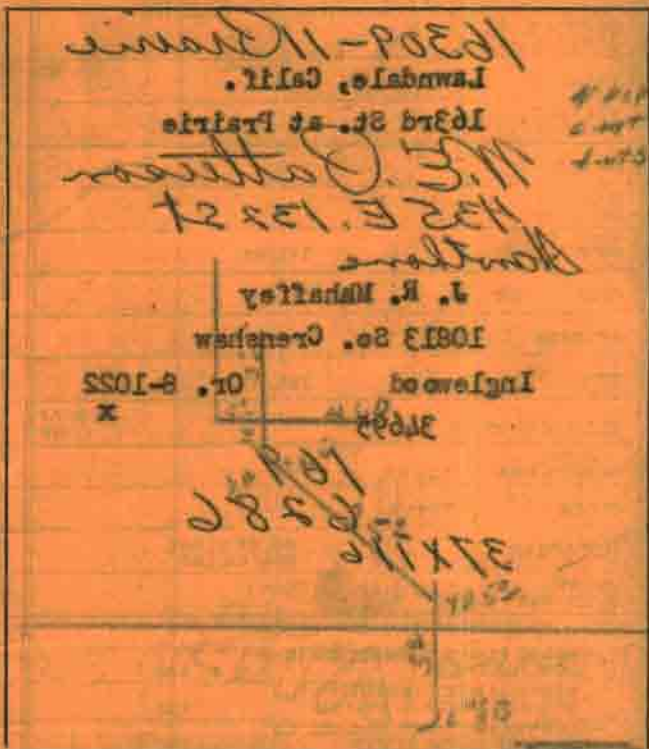 16309-11 Prairie
Lawndale, Calif.
163rd St. at Prairie
W. E. Pattison
435 E. 132 St
Hawthorne
J. R. Mahaffey
10813 So. Crenshaw
Inglewood Or. 8-1022
x
34695
169
6286
37x116